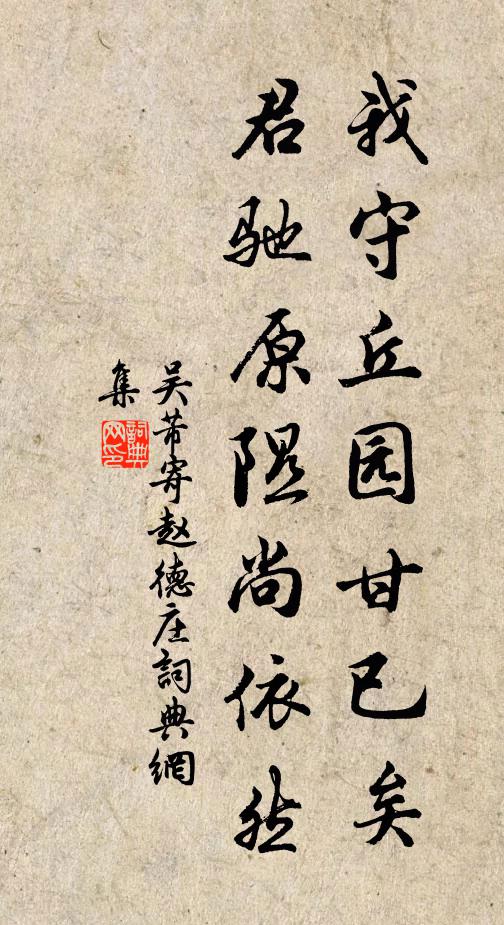 我守丘园甘已矣
君驰原隰尚依然
吴芾寄赵德庄詞典網
集
詞典
网印